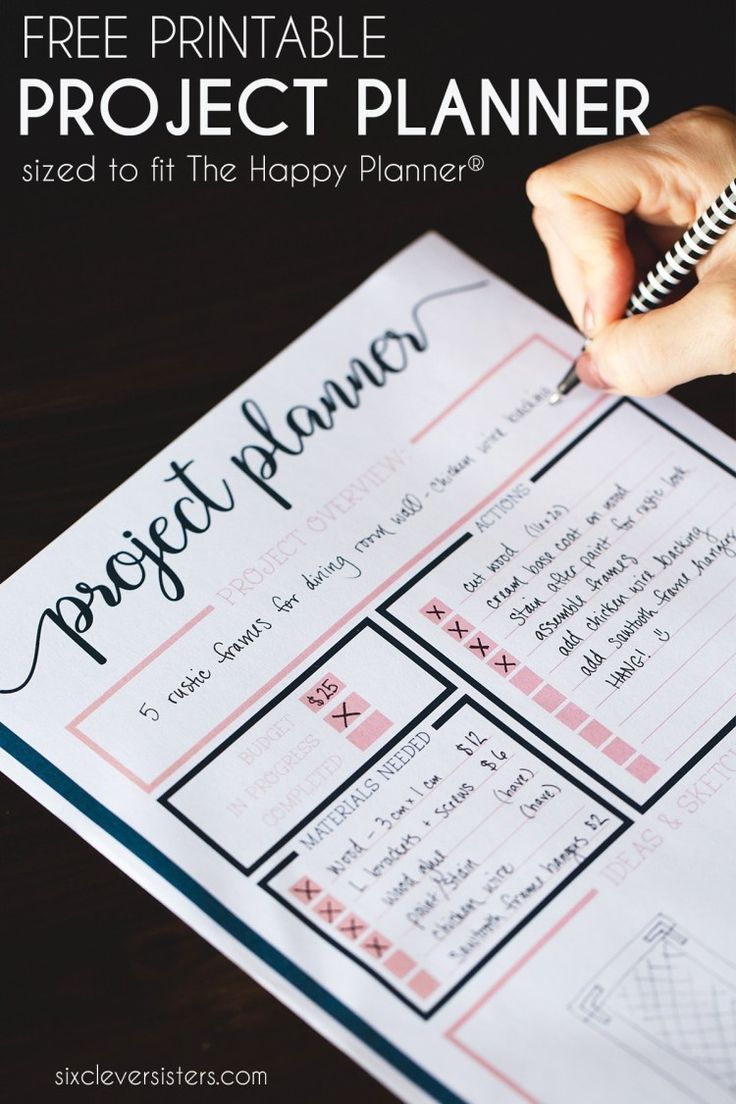 FREE PRINTABLE
PROJECT PLANNER
sized to fit The Happy Planner®
project planner
PROJECT OVERVIEW
5 rustic frames for dining room wall - chicken wire backing
BUDGET $25
IN PROGRESS X
COMPLETED
ACTIONS
X cut wood (16x20)
X cream base coat on wood
X stain after paint for rustic look
X assemble frames
add chicken wire backing
add sawtooth frame hangers
HANG!
MATERIALS NEEDED
X wood - 3cm x 1cm $12
X L brackets + screws $6
X wood glue (have)
X paint/stain (have)
chicken wire
sawtooth frame hangers $2
IDEAS & SKETCH
sixcleversisters.com